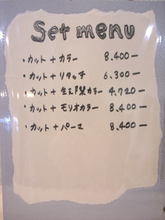 Set menu
・カット + カラー 8.400ー
・カット + リタッチ 6.300ー
・カット + カラー 4.720ー
・カット + モリオカラー 8.400ー
・カット + パーマ 8.400ー